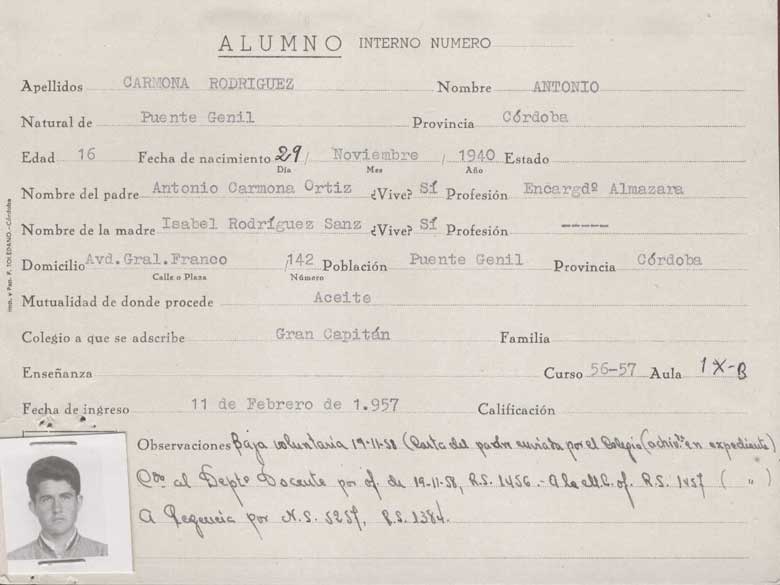 ALUMNO INTERNO NUMERO
Apellidos CARMONA RODRIGUEZ Nombre ANTONIO
Natural de Puente Genil Provincia Córdoba
Edad 16 Fecha de nacimiento 29 / Noviembre / 1940 Estado
Día Mes Año
Nombre del padre Antonio Carmona Ortiz ¿Vive? Sí Profesión Encargdº Almazara
Nombre de la madre Isabel Rodríguez Sanz ¿Vive? Sí Profesión ----
Domicilio Avd.Gral.Franco /142 Población Puente Genil Provincia Córdoba
Calle o Plaza Número
Mutualidad de donde procede Aceite
Colegio a que se adscribe Gran Capitán Familia
Enseñanza Curso 56-57 Aula 1X-B
Fecha de ingreso 11 de Febrero de 1.957 Calificación
Observaciones Baja voluntaria 19-11-58 (Carta del padre enviada por el Colegio (achivª en expediente)
Cº al Deptº Docente por of. de 19-11-58, R.S. 1456.- A la M.L. of. R.S. 1457 ( " )
A Regencia por N.S. 5257, R.S. 1384.
Imp. y Pap. F. TOLEDANO.-Córdoba